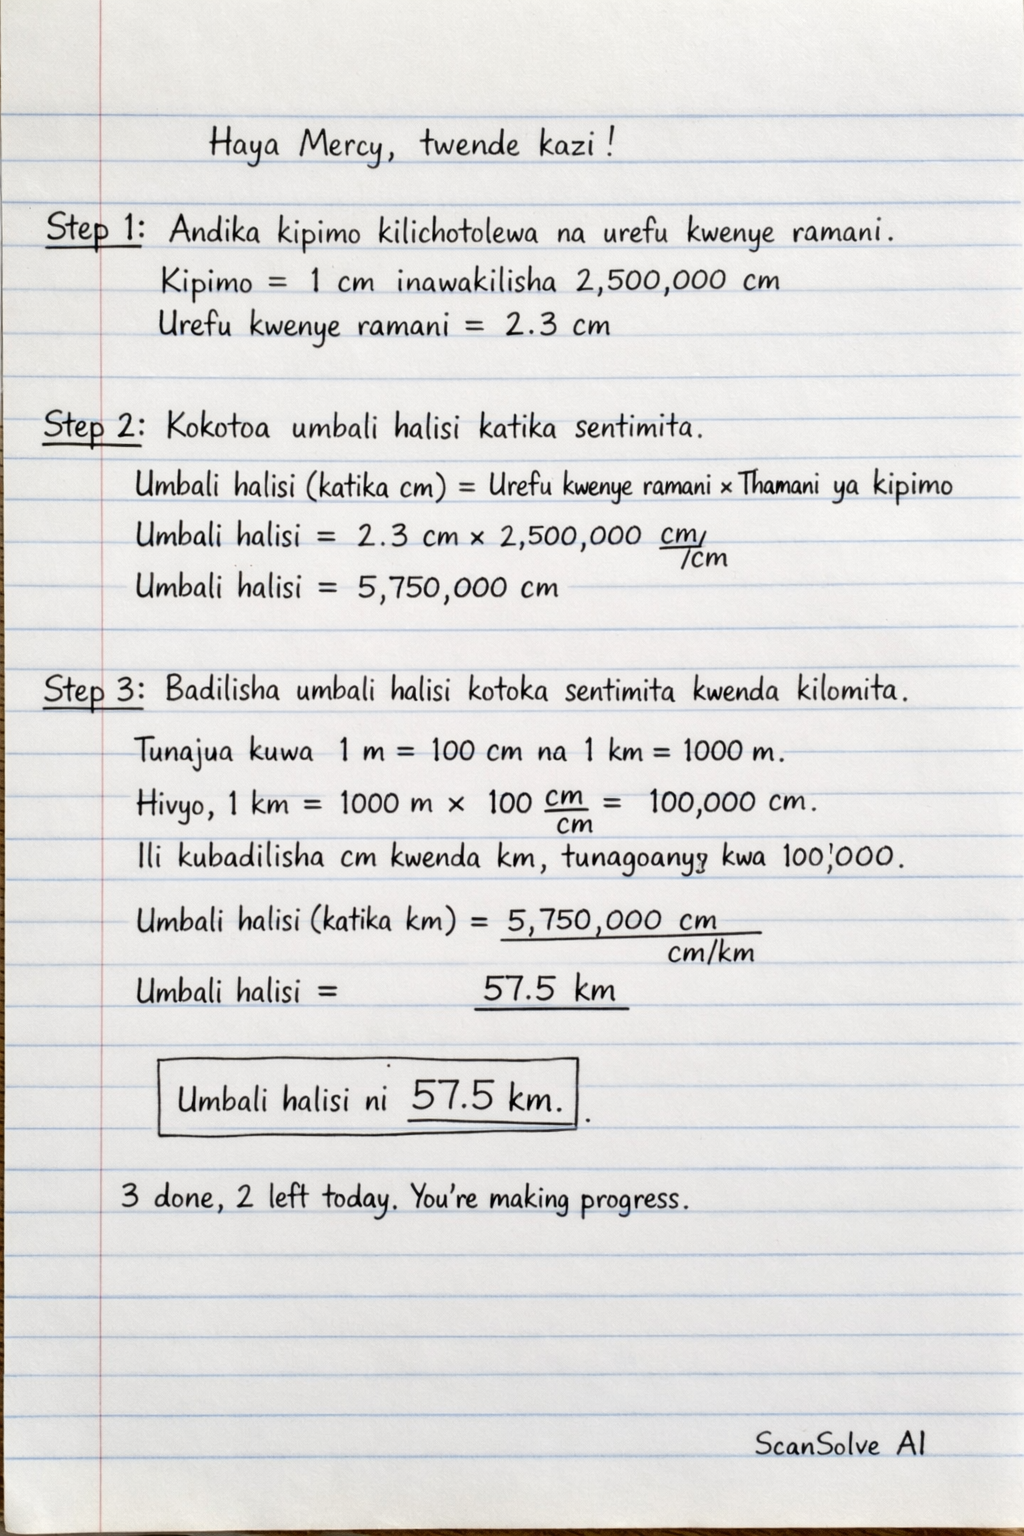 Haya Mercy, twende kazi!
Step 1: Andika kipimo kilichotolewa na urefu kwenye ramani.
Kipimo = 1 cm inawakilisha 2,500,000 cm
Urefu kwenye ramani = 2.3 cm
Step 2: Kokotoa umbali halisi katika sentimita.
Umbali halisi (katika cm) = Urefu kwenye ramani × Thamani ya kipimo
Umbali halisi = 2.3 cm × 2,500,000 cm/
/cm
Umbali halisi = 5,750,000 cm
Step 3: Badilisha umbali halisi kotoka sentimita kwenda kilomita.
Tunajua kuwa 1 m = 100 cm na 1 km = 1000 m.
Hivyo, 1 km = 1000 m × 100 cm = 100,000 cm.
cm
Ili kubadilisha cm kwenda km, kwa 100,000.
Umbali halisi (katika km) = 5,750,000 cm
cm/km
Umbali halisi = 57.5 km
Umbali halisi ni 57.5 km.
3 done, 2 left today. You're making progress.
ScanSolve AI